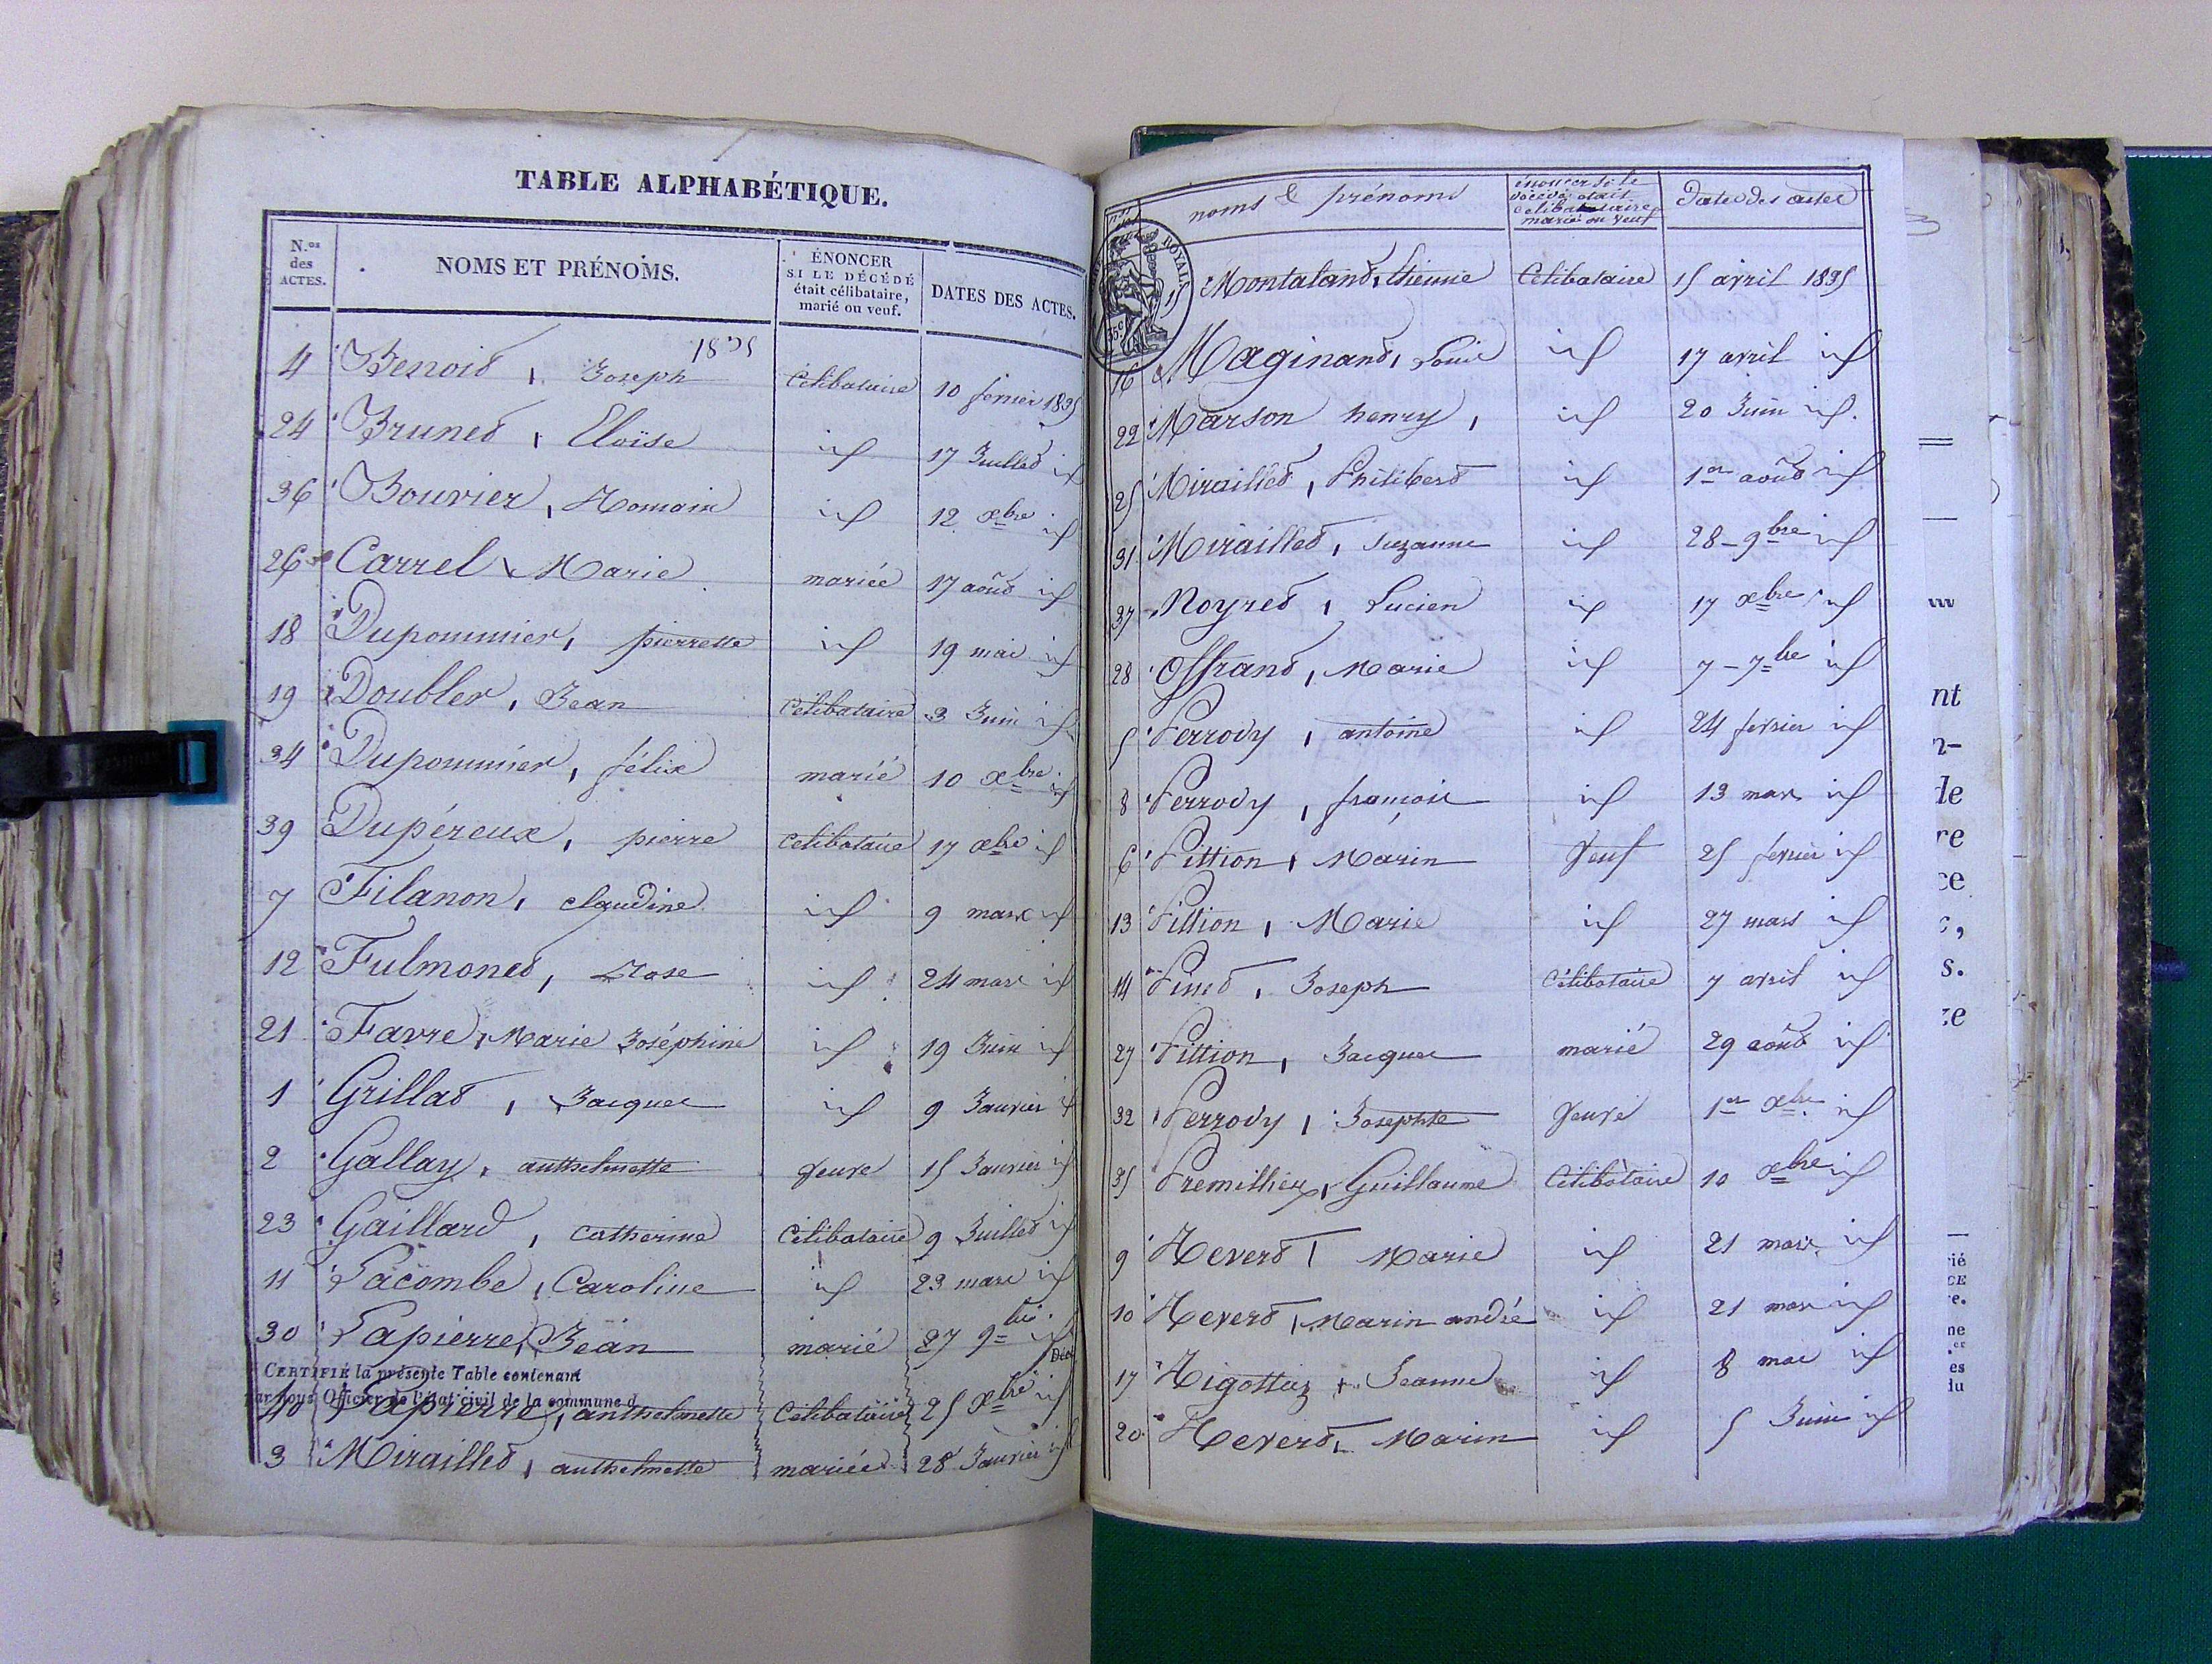 TABLE ALPHABÉTIQUE.
N.os des ACTES. NOMS ET PRÉNOMS. ÉNONCER SI LE DÉCÉDÉ était célibataire, marié ou veuf. DATES DES ACTES.
1835
4 Benoit, Joseph Célibataire 10 fevrier 1835
24 Brunet, Eloïse id 17 Juillet id
36 Bouvier, Romain id 12 xbre id
26 Carrel Marie mariée 17 août id
18 Dupommier, pierrette id 19 mai id
19 Doubler, Jean Célibataire 3 Juin id
34 Dupommier, félix marié 10 xbre id
39 Dupéreux, pierre Célibataire 17 xbre id
7 Filanon, claudine id 9 mars id
12 Fulmonet, Rose id 24 mars id
21 Favre, Marie Joséphine id 19 Juin id
1 Grillat, Jacques id 9 Janvier id
2 Gallay, anthelmette Veuve 15 Janvier id
23 Gaillard, catherine Célibataire 9 Juillet id
11 Lacombe, Caroline id 23 mars id
30 Lapierre, Jean marié 27 9bre id
CERTIFIÉ la présente Table contenant
par nous Officier de l'état civil de la commune d
40 Lapierre, anthelmette Célibataire 25 xbre id
3 Miraillet, anthelmette mariée 28 Janvier id
nos noms & prénoms énoncer si le décédé était célibataire marié ou veuf Dates des actes
ROYAL
35c
15 Montaland, Etienne Célibataire 15 avril 1835
16 Maginand, Louis id 17 avril id
22 Marson henry, id 20 Juin id.
25 Miraillet, Philibert id 1er août id
31 Miraillet, Suzanne id 28 9bre id
37 Noyret, Lucien id 17 xbre id
28 Offrand, Marie id 7 7bre id
5 Perrody, antoine id 24 fevrier id
8 Perrody, françois id 13 mars id
6 Pittion, Marin Veuf 25 fevrier id
13 Pittion, Marie id 27 mars id
14 Pinet, Joseph Célibataire 7 avril id
27 Pittion, Jacques marié 29 août id
32 Perrody, Josephte Veuve 1er xbre id
35 Premillieu, Guillaume Célibataire 10 xbre id
9 Revert, Marie id 21 mars id
10 Revert, Marin andré id 21 mars id
17 Rigottaz, Jeanne id 8 mai id
20 Revert, Marin id 5 Juin id
nt
de
re
ce
s.